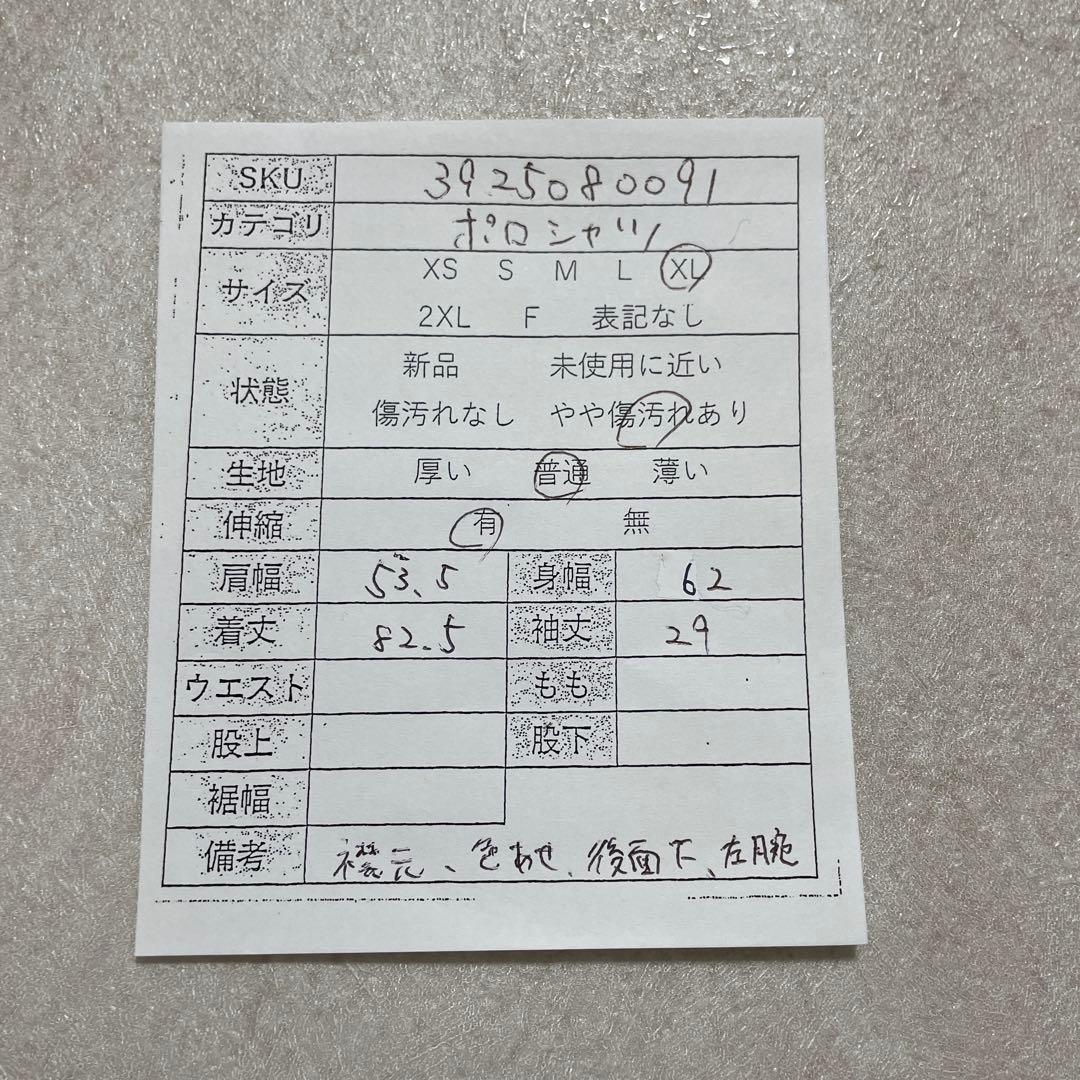 SKU 3925080091
カテゴリ ポロシャツ
サイズ XS S M L XL
2XL F 表記なし
状態 新品 未使用に近い
傷汚れなし やや傷汚れあり
生地 厚い 普通 薄い
伸縮 有 無
肩幅 53.5 身幅 62
着丈 82.5 袖丈 29
ウエスト もも
股上 股下
裾幅
備考 襟元、色あせ、後面下、左腕